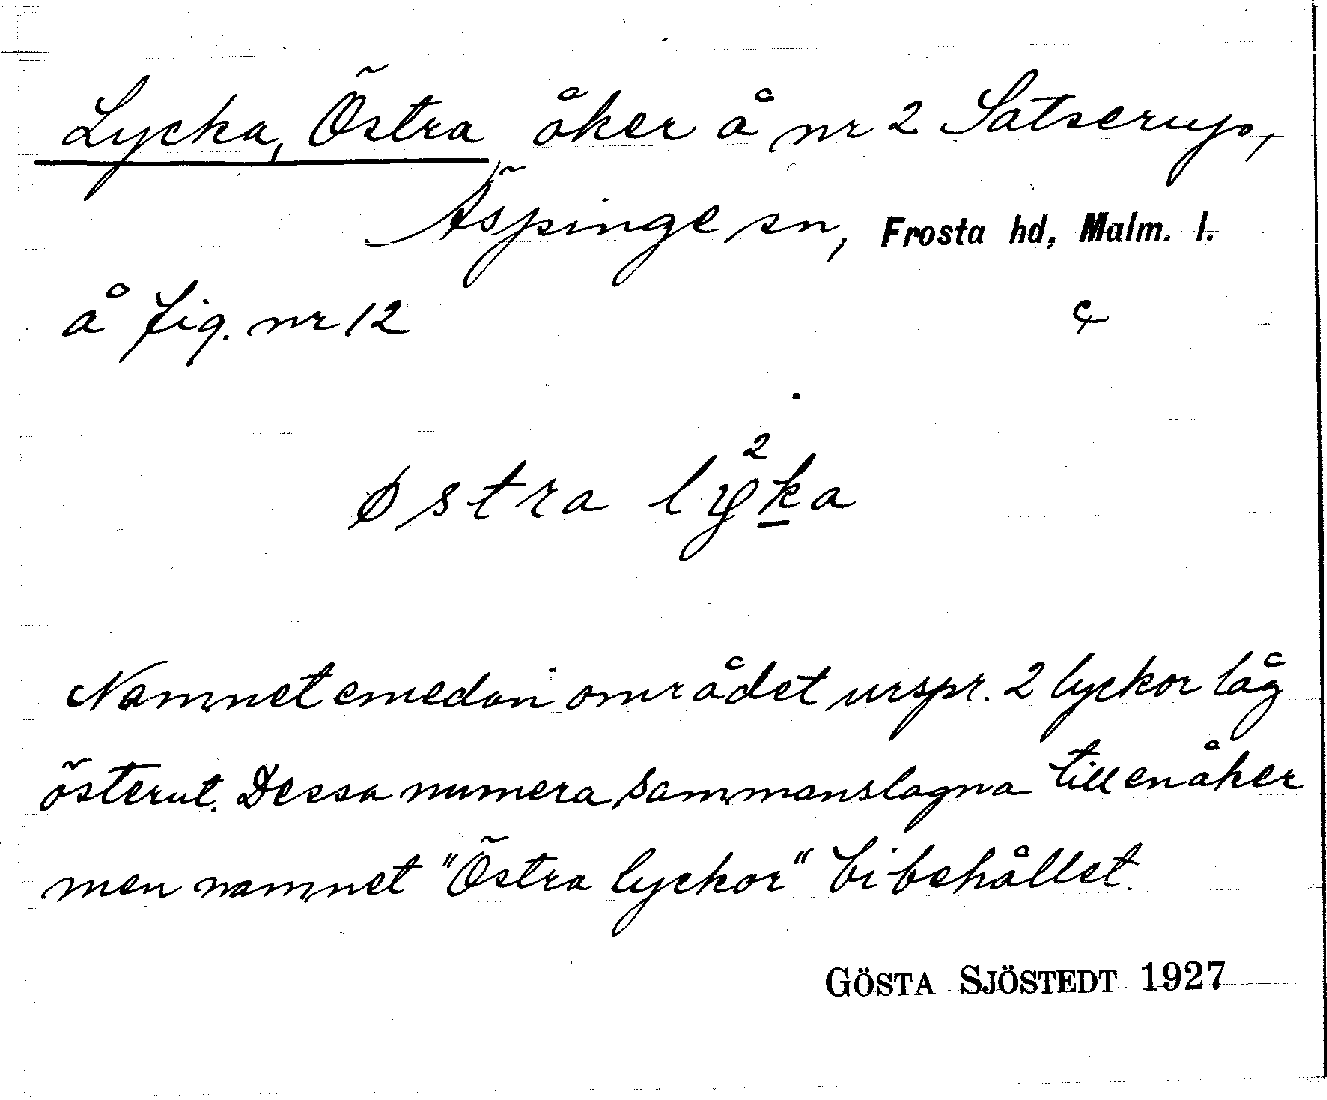 Lycka, Östra åker å nr 2 Satserup,
Äspinge sn, Frosta hd, Malm. l.
å fig. nr 12 c
2
østra lyka
Namnet emedan området urspr. 2 lyckor låg
österut. Dessa numera sammanslagna till en åker
men namnet "Östra lyckor" bibehållet.
GÖSTA SJÖSTEDT 1927